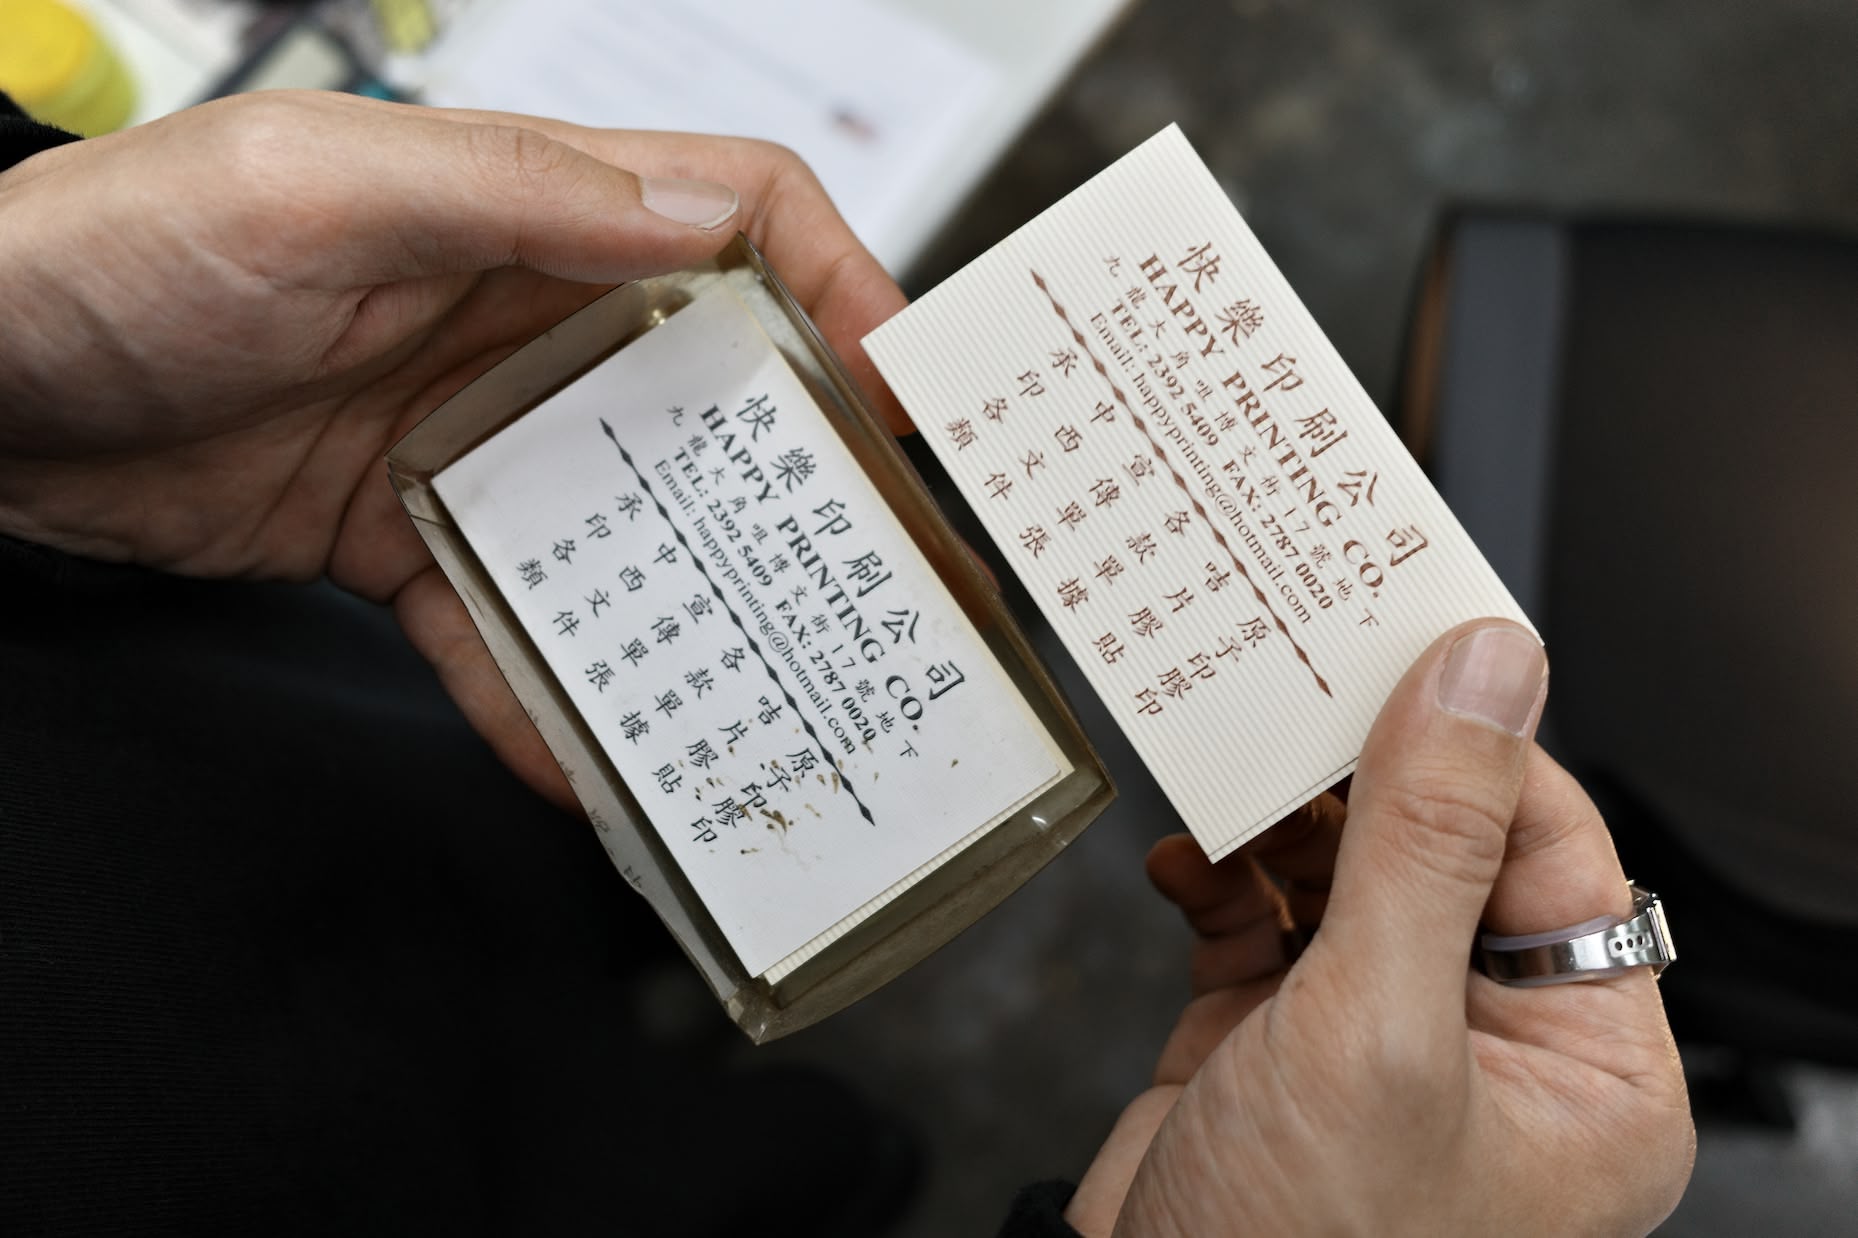 快樂印刷公司
HAPPY PRINTING CO.
九龍大角咀博文街17號地下
TEL: 2392 5409 FAX: 2787 0020
Email: happyprinting@hotmail.com
承印各類
中西文件
宣傳單張
各款單據
咭片膠貼
原子印膠印
快樂印刷公司
HAPPY PRINTING CO.
九龍大角咀博文街17號地下
TEL: 2392 5409 FAX: 2787 0020
Email: happyprinting@hotmail.com
承印各類
中西文件
宣傳單張
各款單據
咭片膠貼
原子印膠印